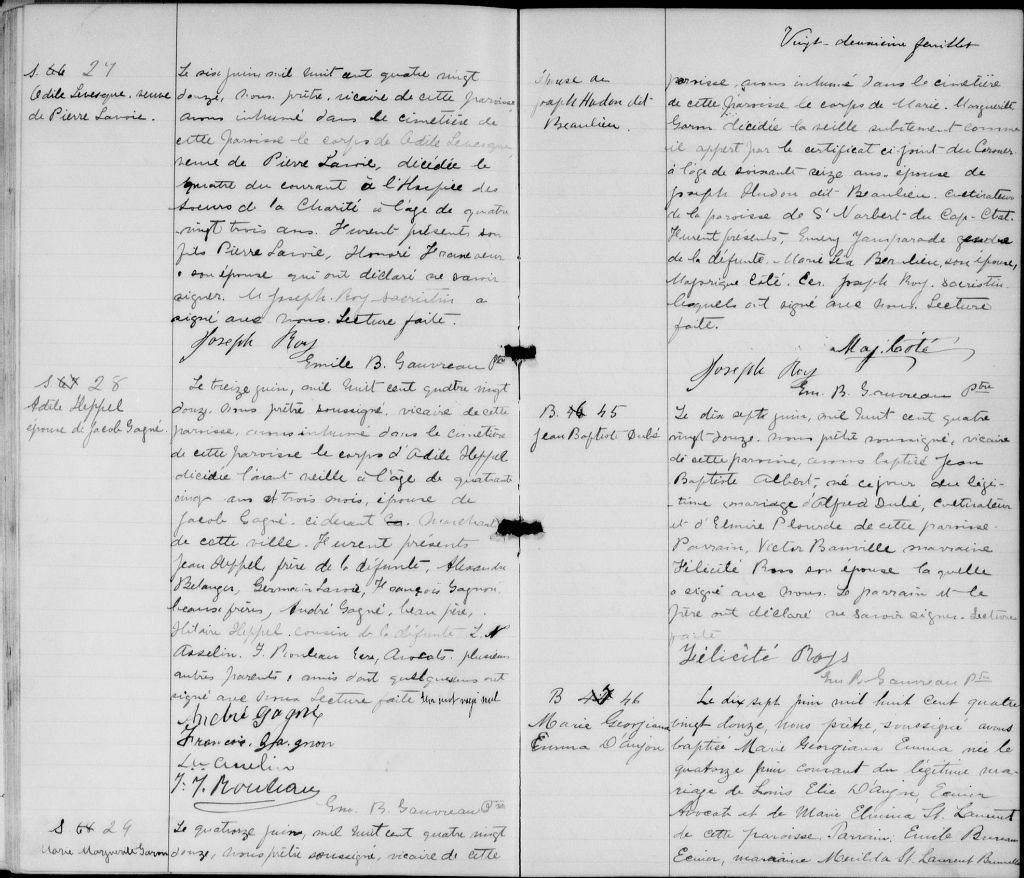 S. 66 27
Adile Levesque. veuve
de Pierre Lavoie.
Le six juin mil huit cent quatre vingt
douze, nous prêtre, vicaire de cette paroisse
avons inhumé dans le cimetière de
cette paroisse le corps de Adile Levesque
veuve de Pierre Lavoie, décédée le
quatre du courant à l'Hospice des
Soeurs de la Charité à l'âge de quatre
vingt trois ans. Furent présents son
fils Pierre Lavoie, Honoré
son épouse qui ont déclaré ne savoir
signer. M Joseph Roy sacristin a
signé avec nous. Lecture faite.
Joseph Roy
Emile B. Gauvreau Ptre
S 67 28
Adile Heppel
épouse de Jacob Gagné.
Le treize juin, mil huit cent quatre vingt
douze, nous prêtre soussigné, vicaire de cette
paroisse, avons inhumé dans le cimetière
de cette paroisse le corps d'Adile Heppel
décédée l'avant veille à l'âge de quarante
cinq ans et trois mois, épouse de
Jacob Gagné. ci devant Marchand
de cette ville. Furent présents
Jean Heppel, frère de la défunte, Alexandre
Belanger, Germain Lavoie, François Gagnon,
beaux frères, André Gagné, beau père,
Hilaire Heppel, cousin de la défunte L. N
Asselin. F. Rouleau Ecrs, Avocats. plusieurs
autres parents & amis dont quelques uns ont
signé avec nous Lecture faite
André Gagné
François Gagnon
L. N. Asselin
F. F. Rouleau
Em. B. Gauvreau Ptre
S 68 29
Marie Marguerite Garon
Le quatorze juin, mil huit cent quatre vingt
douze, nous prêtre soussigné, vicaire de cette
Vingt-deuxième feuillet
épouse de
Joseph Hudon dit
Beaulieu.
paroisse, avons inhumé dans le cimetière
de cette paroisse le corps de Marie Marguerite
Garon décédée la veille subitement comme
il appert par le certificat ci-joint du Coroner
à l'âge de soixante seize ans. épouse de
Joseph Hudon dit Beaulieu. cultivateur
de la paroisse de St Norbert du Cap-Chat.
Furent présents, Emery gendre
de la défunte. Marie Léa Beaulieu, son épouse,
Majorique Côté. Joseph Roy. sacristin
lesquels ont signé avec nous. Lecture
faite.
Maj. Coté
Joseph Roy
Em. B. Gauvreau Ptre
B. 46 45
Jean Baptiste Dubé
Le dix sept juin, mil huit cent quatre
vingt-douze. nous prêtre soussigné, vicaire
de cette paroisse, avons baptisé Jean
Baptiste Albert, né ce jour du légi-
time mariage d'Alfred Dubé, cultivateur
et d'Elmire Plourde de cette paroisse.
Parrain, Victor Banville marraine
Félicité Ross son épouse laquelle
a signé avec nous. Le parrain et le
père ont déclaré ne savoir signer. Lecture
faite
Félicité Ross
Em. B. Gauvreau Ptre
B 47 46
Marie Georgiana
Emma D'Anjou
Le dix sept juin mil huit cent quatre
vingt douze, nous prêtre, soussigné avons
baptisé Marie Georgiana Emma née le
quatorze juin courant du légitime ma-
riage de Louis Elie D'Anjou, Ecuier
Avocat et de Marie Elmina St. Laurent
de cette paroisse. Parrain. Emile
Ecuier, marraine St. Laurent